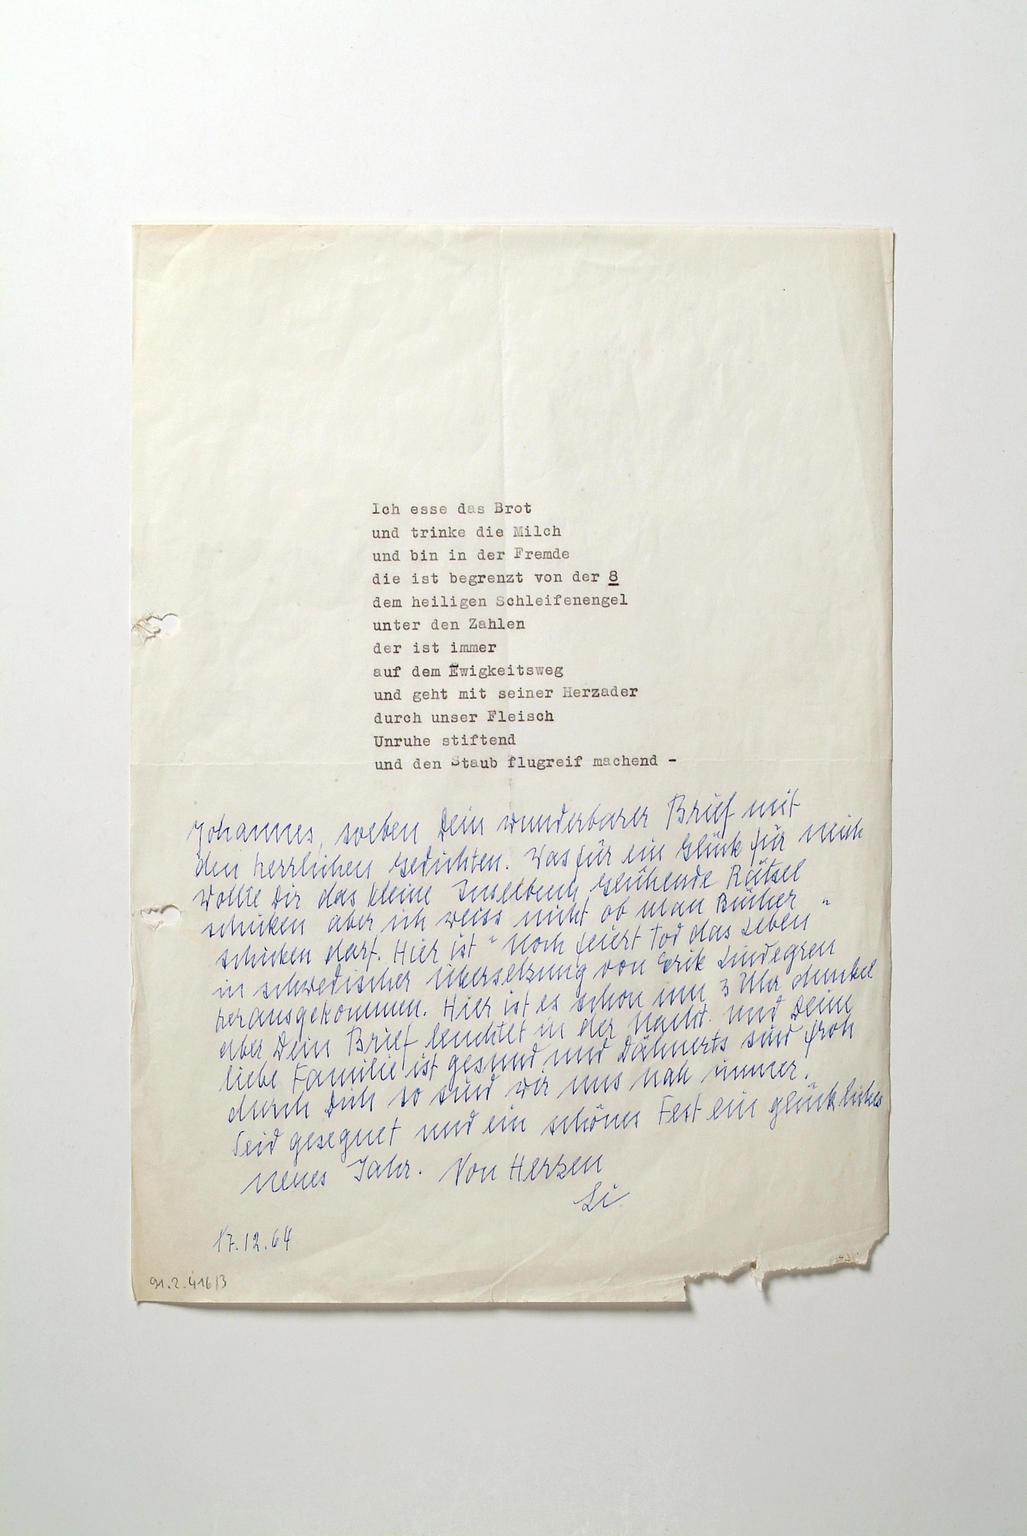 Ich esse das Brot
und trinke die Milch
und bin in der Fremde
die ist begrenzt von der 8
dem heiligen Schleifenengel
unter den Zahlen
der ist immer
auf dem Ewigkeitsweg
und geht mit seiner Herzader
durch unser Fleisch
Unruhe stiftend
und den Staub flugreif machend -
Johannes, soeben Dein wunderbarer Brief mit
den herrlichen Gedichten. Was für ein Glück für mich
Wollte Dir das kleine Inselbuch Glühende Rätsel
schicken aber ich weiss nicht ob man Bücher
schicken darf. Hier ist "Noch feiert Tod das Leben"
in schwedischer Übersetzung von Erik Lindegren
herausgekommen. Hier ist es schon um 3 Uhr dunkel
aber Dein Brief leuchtet in der Nacht und Deine
liebe Familie ist gesund und Dähnerts sind froh
durch Dich so sind wir uns nah immer.
Seid gesegnet und ein schönes Fest ein glückliches
neues Jahr. Von Herzen
Li.
17.12.64
91.2.416/3